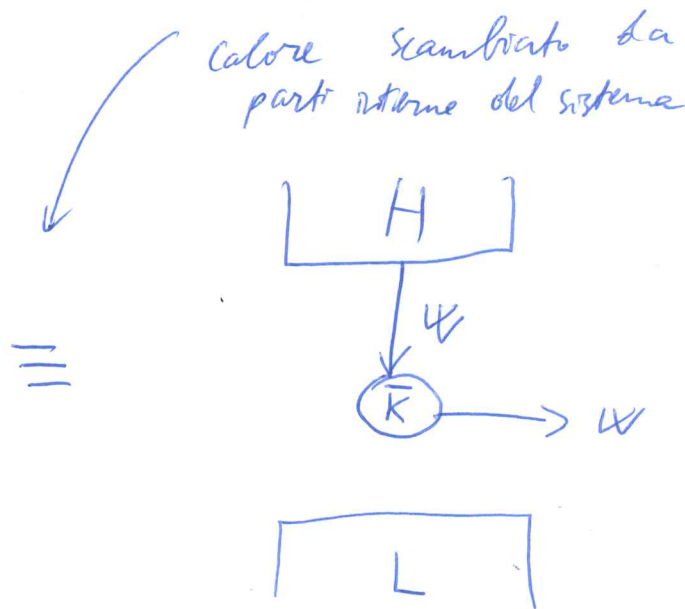 calore scambiato da
parti interne del sistema
H
W
≡
K̅
W
L